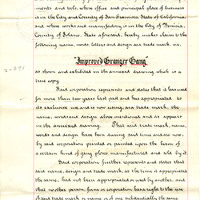 ments and sole, whose office and principal place of business
is in the City and County of San Francisco, State of California,
and whose works and manufactory is in the City of Benicia,
County of Solano, State aforesaid, hereby makes claim to the
following name, words, letters and design as a trade mark, viz.
"Improved Granger Gang"
as shown and exhibited in the annexed drawing which is a
true copy.
Said corporation represents and states that it has used
for more than ten years last past and has appropriated to
its exclusive use and is now using, as a trade mark, the
name, words and design above mentioned and as appears
in the annexed drawing. That said trade mark, name,
words and design have been during said time and are now
by said corporation printed or painted upon the beam of
a certain kind of gang plow manufactured and sold by it.
Said corporation further represents and states that
said name, design and trade mark, as the time of appropriating
the same, had not been appropriated or used by another, and
that no other person, firm or corporation has a right to the use